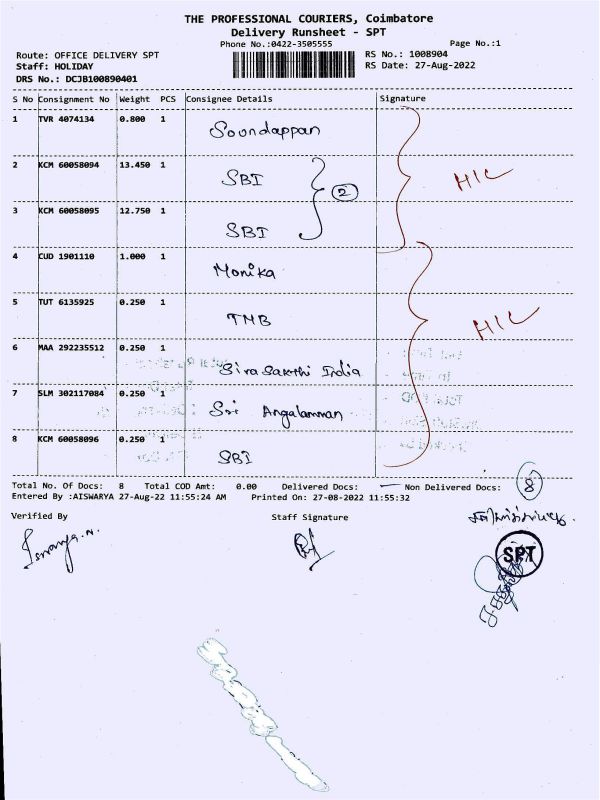 THE PROFESSIONAL COURIERS, Coimbatore
Delivery Runsheet - SPT
Phone No.:0422-3505555
Page No.:1
Route: OFFICE DELIVERY SPT
RS No.: 1008904
Staff: HOLIDAY
RS Date: 27-Aug-2022
DRS No.: DCJB100890401
S No Consignment No Weight PCS Consignee Details Signature
1 TVR 4074134 0.800 1 Soundappan
2 KCM 60058094 13.450 1 SBI 2 HIC
3 KCM 60058095 12.750 1 SBI
4 CUD 1901110 1.000 1 Monika
5 TUT 6135925 0.250 1 TMB HIC
6 MAA 292235512 0.250 1 Siva Sakthi India
7 SLM 302117084 0.250 1 Sri Angalamman
8 KCM 60058096 0.250 1 SBI
Total No. Of Docs: 8 Total COD Amt: 0.00 Delivered Docs: — Non Delivered Docs: 8
Entered By :AISWARYA 27-Aug-22 11:55:24 AM Printed On: 27-08-2022 11:55:32
Verified By Staff Signature
SPT